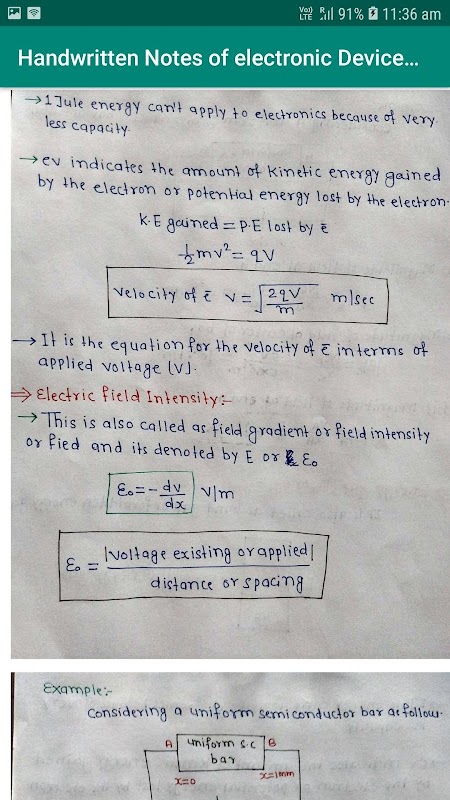 Vo))
LTE
R
91%
11:36 am
Handwritten Notes of electronic Device...
→ 1 Jule energy can't apply to electronics because of very
less capacity.
→ ev indicates the amount of Kinetic energy gained
by the electron or potential energy lost by the electron.
K.E gained = P.E lost by ē
1/2 mv² = qV
Velocity of ē v = √(2qV/m) m/sec
→ It is the equation for the velocity of ē interms of
applied voltage (V).
⇒ Electric field Intensity:-
→ This is also called as field gradient or field intensity
or fied and its denoted by E or Ɛ₀
Ɛ₀ = - dv/dx V/m
Ɛ₀ = |voltage existing or applied| / distance or spacing
Example:-
Considering a uniform semiconductor bar as follow.
A uniform s.c B
bar
x=0 x=1mm